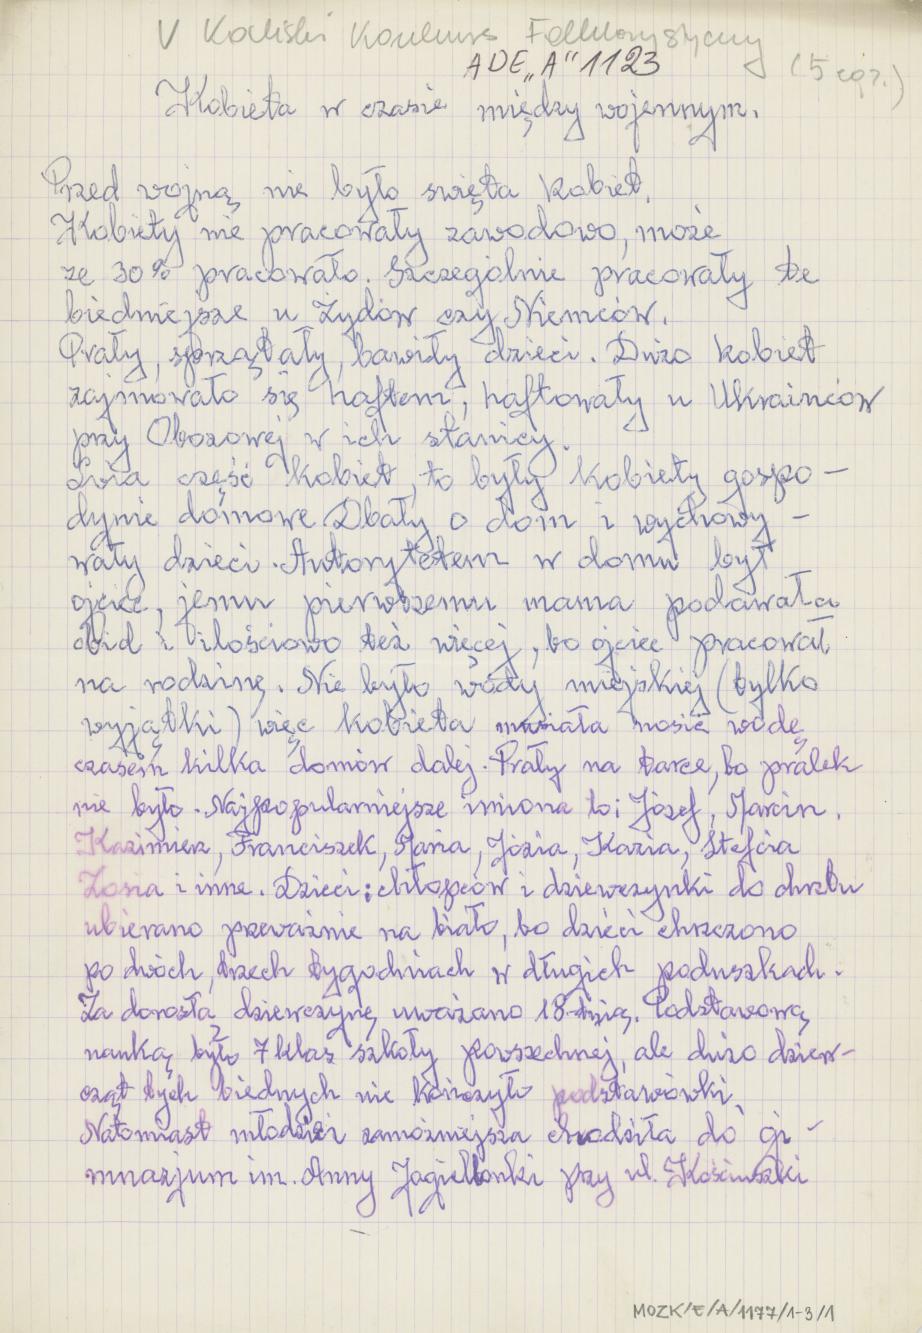 V Kaliski Konkurs Folklorystyczny
ADE „A" 1123
(5 egz.)
Kobieta w czasie między wojennym.
Przed wojną nie było święta kobiet.
Kobiety nie pracowały zawodowo, może
ze 30% pracowało. Szczególnie pracowały te
biedniejsze u Żydów czy Niemców.
Prały, sprzątały, bawiły dzieci. Dużo kobiet
zajmowało się haftem, haftowały u Ukraińców
przy Obozowej w ich stanicy.
Lwia część kobiet, to były kobiety gospo-
dynie domowe. Dbały o dom i wychowy-
wały dzieci. Autorytetem w domu był
ojciec, jemu pierwszemu mama podawała
obid i ilościowo też więcej, bo ojciec pracował
na rodzinę. Nie było wody miejskiej (tylko
wyjątki) więc kobieta musiała nosić wodę
czasem kilka domów dalej. Prały na tarce, bo pralek
nie było. Najpopularniejsze imiona to: Józef, Marcin,
Kazimierz, Franciszek, Maria, Józia, Kazia, Stefcia
Zosia i inne. Dzieci: chłopców i dziewczynki do chrztu
ubierano przeważnie na biało, bo dzieci chrzczono
po dwóch, trzech tygodniach w długich poduszkach.
Za dorosłą dziewczynę uważano 18-tnią. Podstawową
nauką było 7 klas szkoły powszechnej, ale dużo dziew-
cząt tych biednych nie kończyło podstawówki.
Natomiast młodzież zamożniejsza chodziła do gi-
mnazjum im. Anny Jagiellonki przy ul. Kościuszki
MOZK/E/A/1177/1-3/1